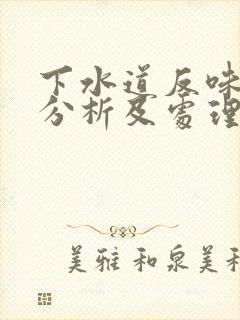 下水道反味
分析及处理
美雅和泉美和